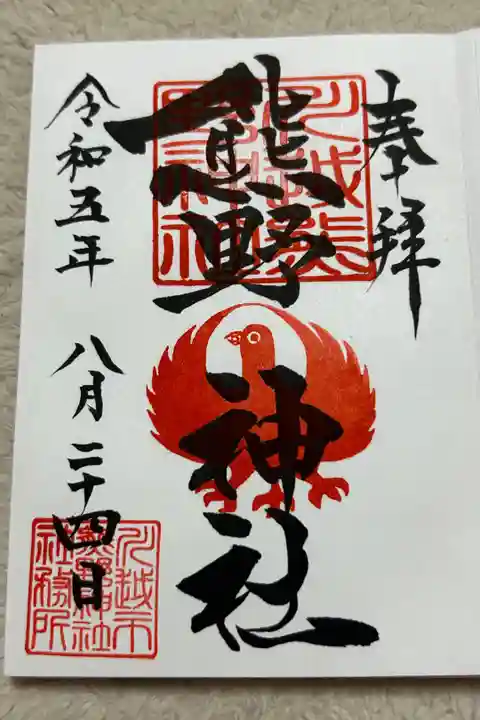 奉拝
熊野神社
川越熊野神社
令和五年 八月二十四日
川越市
熊野神社
社務所